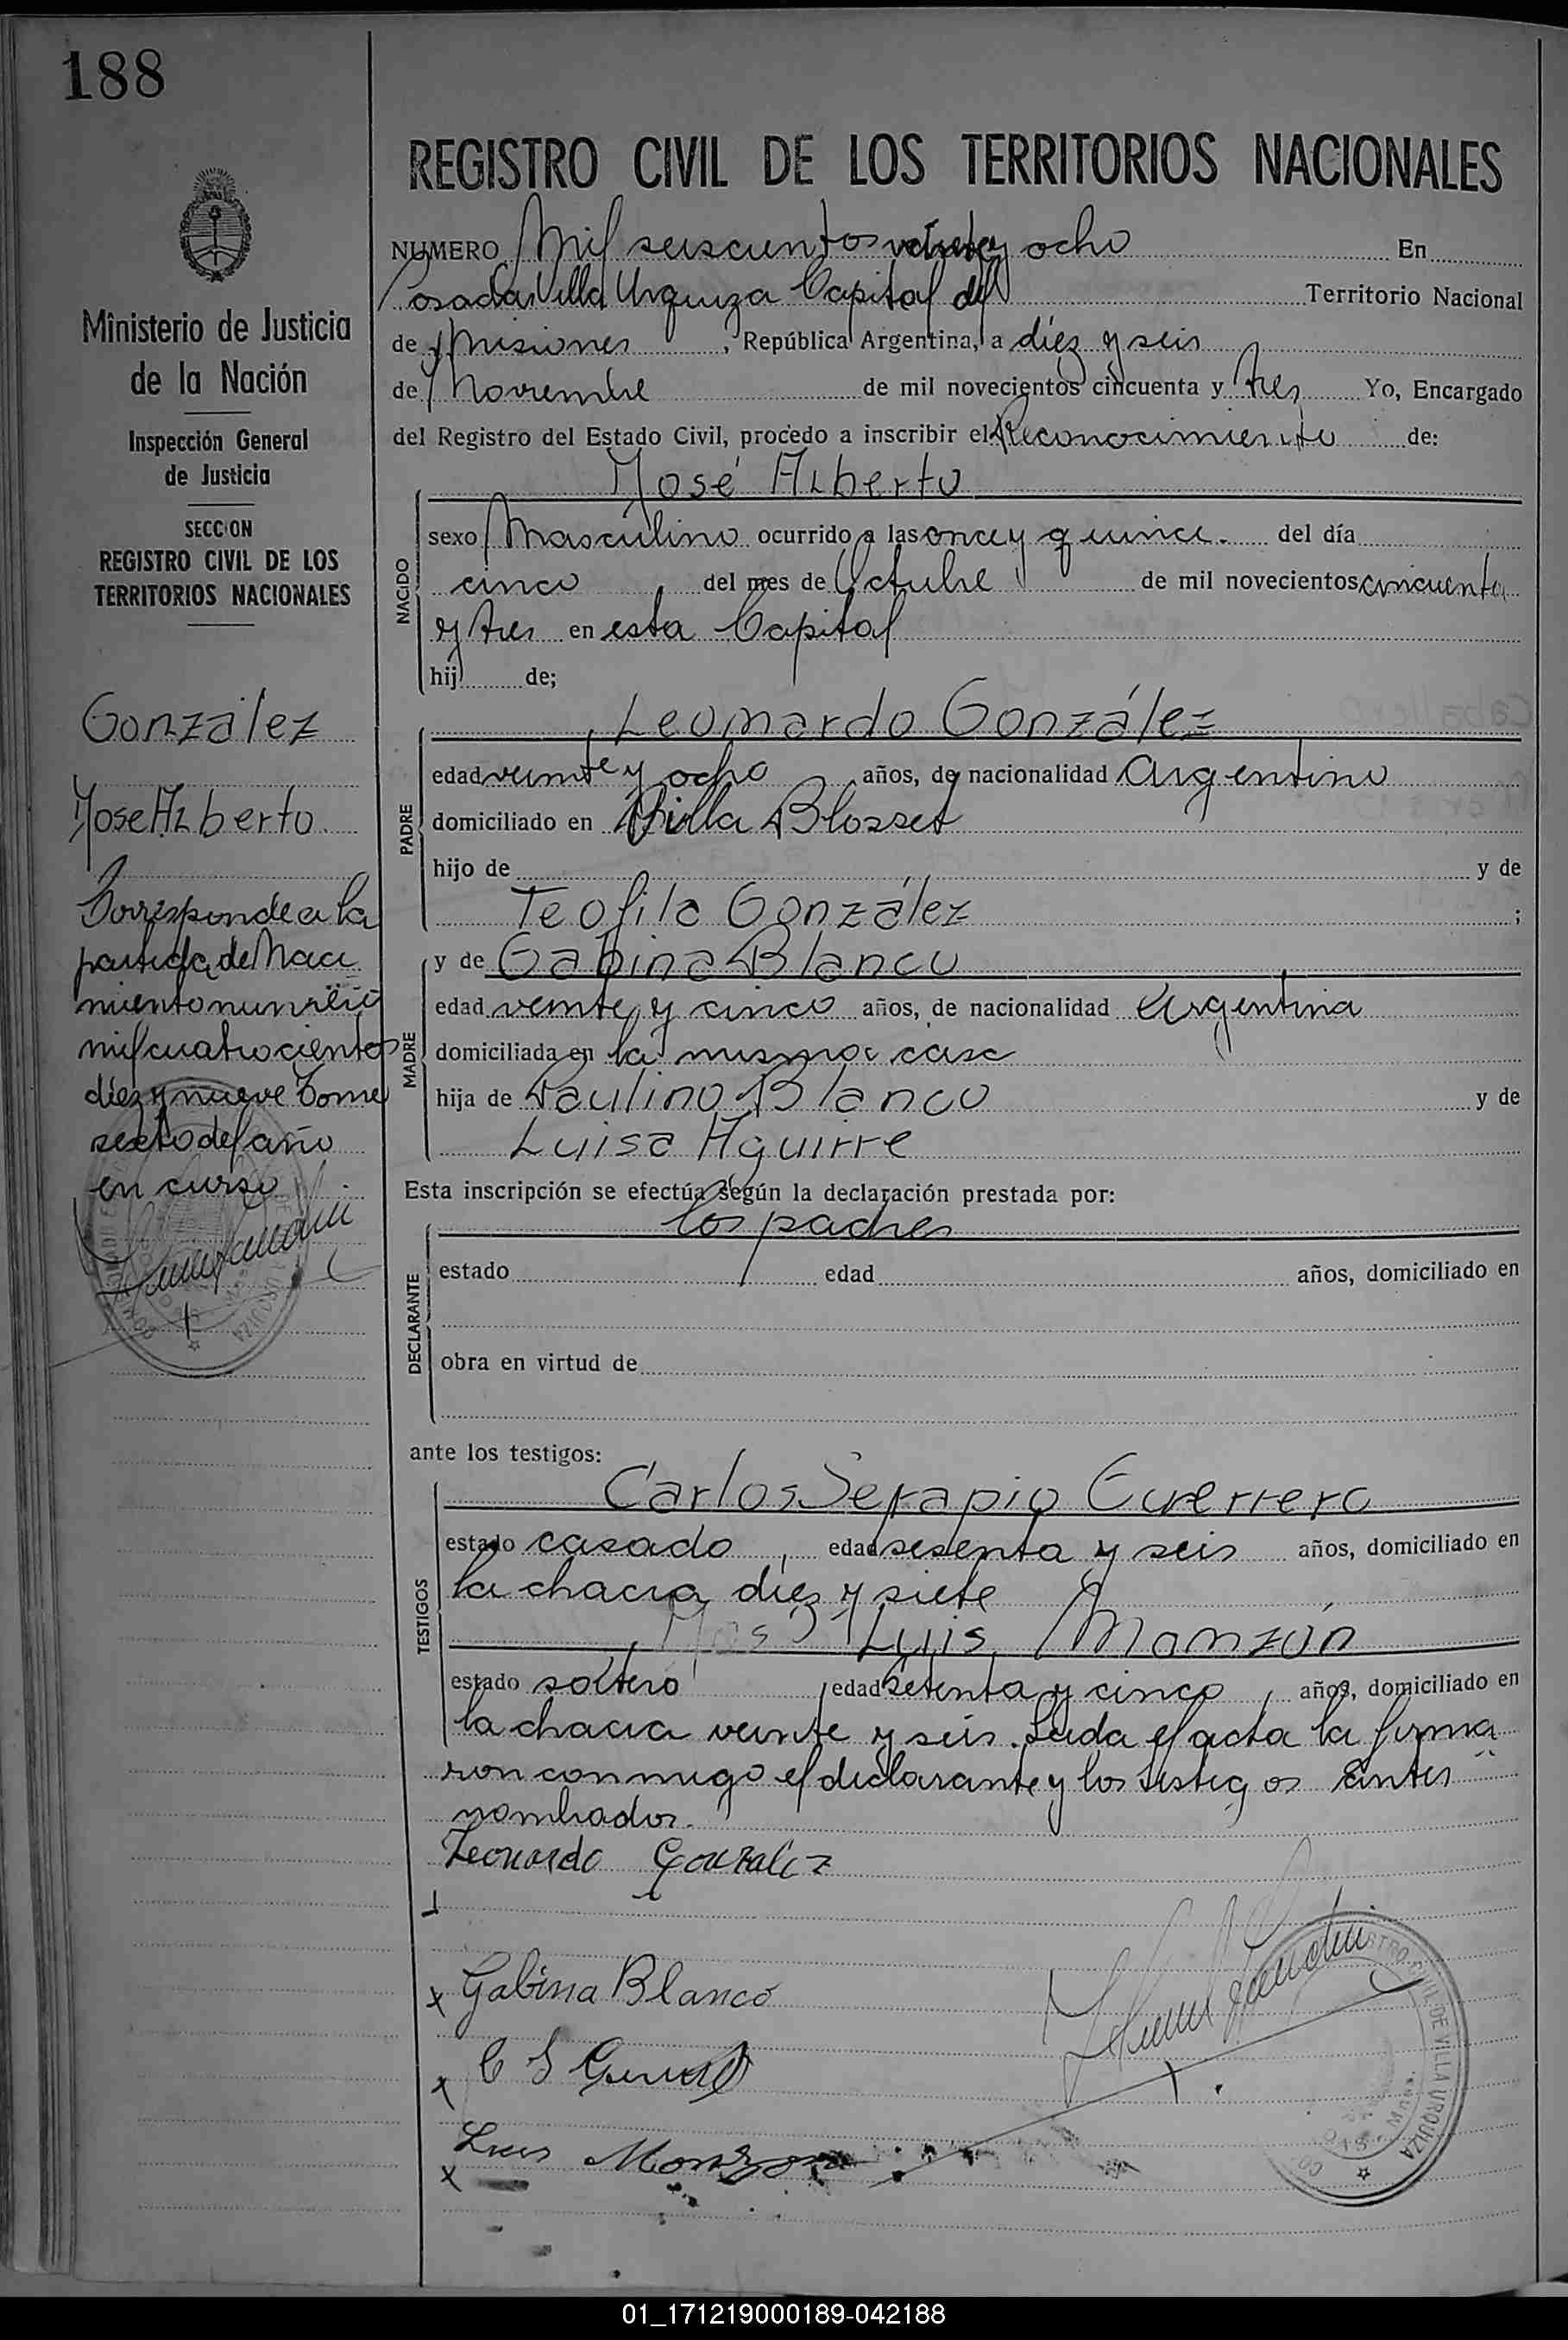 188
REGISTRO CIVIL DE LOS TERRITORIOS NACIONALES
NUMERO Mil seiscientos veinte y ocho En
Posadas Villa Urquiza Capital del Territorio Nacional
de Misiones, República Argentina, a diez y seis
de Noviembre de mil novecientos cincuenta y tres Yo, Encargado
del Registro del Estado Civil, procedo a inscribir el Reconocimiento de:
José Alberto
NACIDO
sexo Masculino ocurrido a las once y quince. del día
cinco del mes de Octubre de mil novecientos cincuenta
y tres en esta Capital
hij de;
PADRE
Leonardo González
edad veinte y ocho años, de nacionalidad Argentino
domiciliado en Villa Blosset
hijo de y de
Teofila González ;
MADRE
y de Gabina Blanco
edad veinte y cinco años, de nacionalidad Argentina
domiciliada en la misma casa
hija de Paulino Blanco y de
Luisa Aguirre
Esta inscripción se efectúa según la declaración prestada por:
DECLARANTE
los padres
estado edad años, domiciliado en
obra en virtud de
ante los testigos:
TESTIGOS
Carlos Serapio Guerrero
estado casado, edad sesenta y seis años, domiciliado en
la chacra diez y siete
José Luis Monzón
estado soltero edad setenta y cinco, años, domiciliado en
la chacra veinte y seis. Leida el acta la firma
ron conmigo el declarante y los testigos antes
nombrados.
Leonardo Gonzalez
x Gabina Blanco
x C S
x Luis Monzon
REGISTRO CIVIL DE VILLA URQUIZA
Ministerio de Justicia
de la Nación
Inspección General
de Justicia
SECCION
REGISTRO CIVIL DE LOS
TERRITORIOS NACIONALES
González
Jose Alberto
Corresponde a la
partida de Naci
miento numero
mil cuatrocientos
diez y nueve Tomo
sexto del año
en curso
01_171219000189-042188